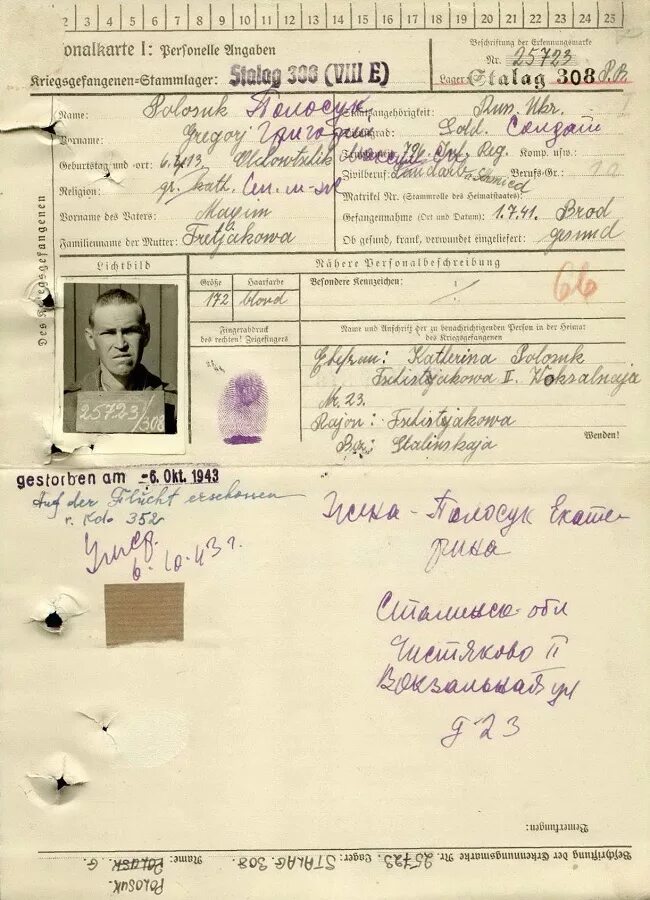 2 3 4 5 6 7 8 9 10 11 12 13 14 15 16 17 18 19 20 21 22 23 24 25
onalkarte I: Personelle Angaben
Kriegsgefangenen-Stammlager: Stalag 308 (VIII E)
Beschriftung der Erkennungsmarke
Nr. 25723
Lager: Stalag 308
Des Kriegsgefangenen
Name: Polosuk Полосук
Vorname: Gregorj Григорий
Geburtstag und -ort:
Religion: gr. kath.
Vorname des Vaters: Maxim
Familienname der Mutter: Tretjakowa
Staatsangehörigkeit: Russ. Ukr.
Sold. Солдат
Komp. usw.:
Zivilberuf: Landarb. Schmied Berufs-Gr.:
Matrikel Nr. (Stammrolle des Heimatstaates):
Gefangennahme (Ort und Datum): 1.7.41. Brod
Ob gesund, krank, verwundet eingeliefert: gesund
Lichtbild
Nähere Personalbeschreibung
Größe Haarfarbe Besondere Kennzeichen:
172 blond
66
Fingerabdruck
des rechten! Zeigefingers
Name und Anschrift der zu benachrichtigenden Person in der Heimat
des Kriegsgefangenen
Ehefrau: Katherina Polosuk
Tschistjakowa II. Woksalnaja
Nr. 23.
Rajon: Tschistjakowa
Stalinskaja
Wenden!
25723/308
gestorben am -6. Okt. 1943
Auf der Flucht erschossen
v. Kdo 352
Умер.
6.10.43 г.
Жена - Полосук Екате-
рина
Сталинск. обл
Чистяково II
Вокзальная ул
д 23
Bemerkungen:
Beschriftung der Erkennungsmarke Nr. 25723 Lager: STALAG 308 Name: POLOSUK G.
POLOSUK.